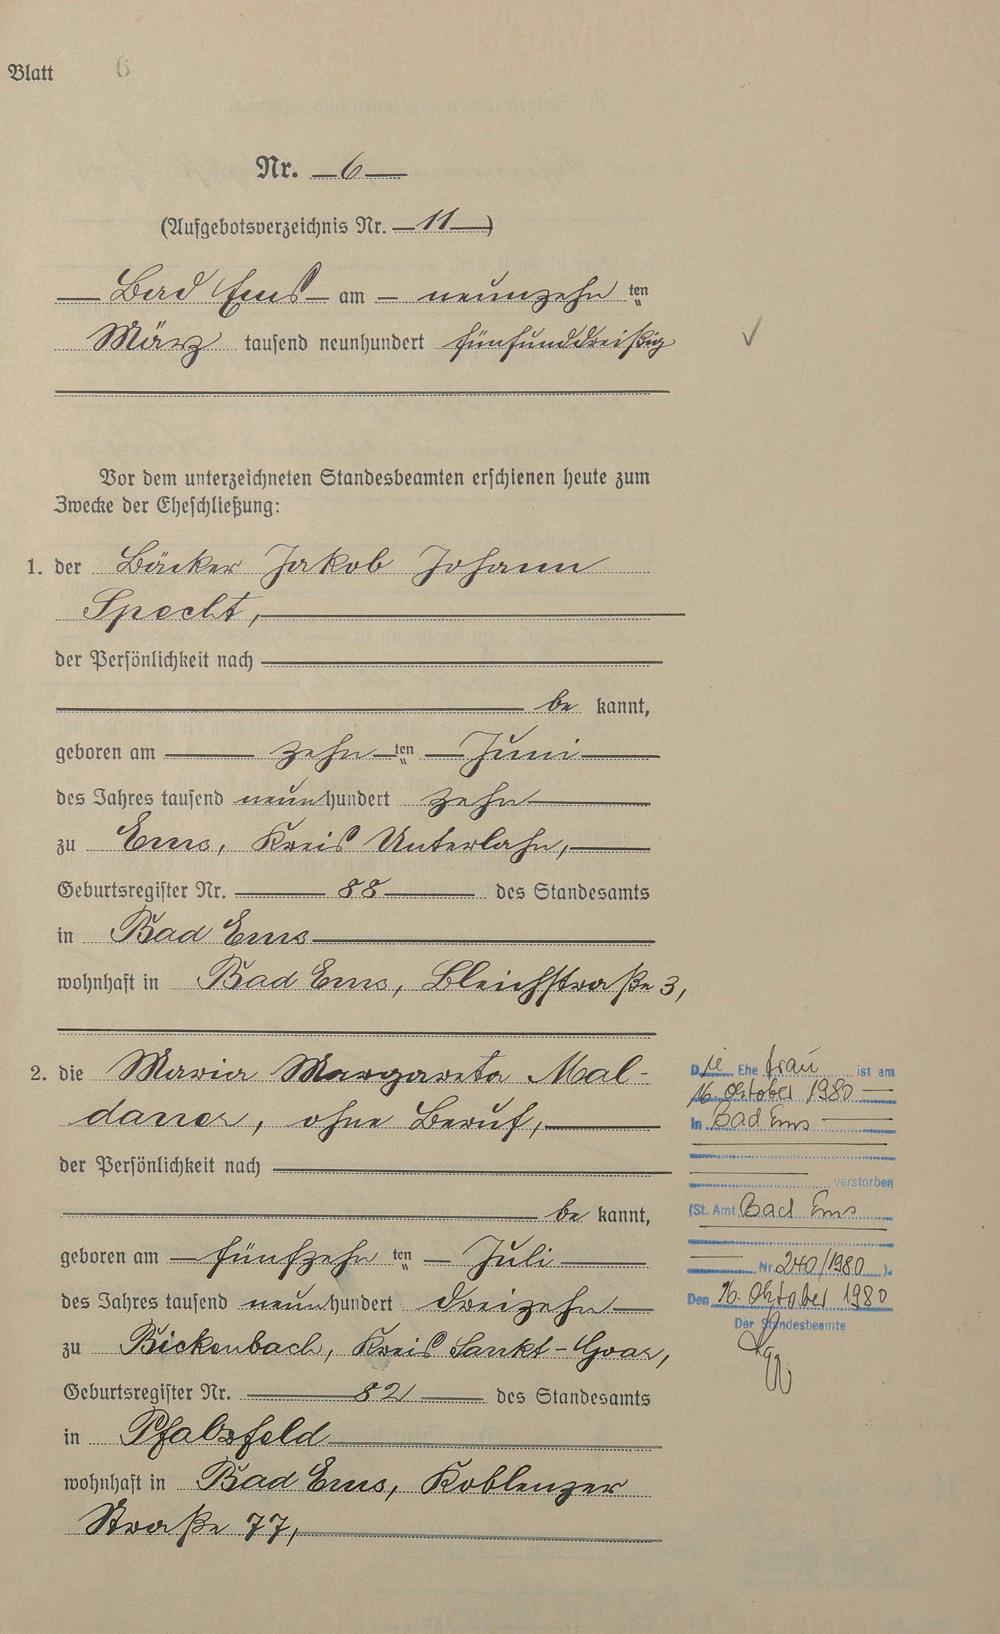 Blatt 6
Nr. 6
(Aufgebotsverzeichnis Nr. 11)
Bad Ems am neunzehnten
März tausend neunhundert fünfunddreißig
Vor dem unterzeichneten Standesbeamten erschienen heute zum
Zwecke der Eheschließung:
1. der Bäcker Jakob Johann
Specht,
der Persönlichkeit nach
be kannt,
geboren am zehnten Juni
des Jahres tausend neunhundert zehn
zu Ems, Kreis Unterlahn,
Geburtsregister Nr. 88 des Standesamts
in Bad Ems
wohnhaft in Bad Ems, Bleichstraße 3,
2. die Maria Margareta Mal-
daner, ohne Beruf,
der Persönlichkeit nach
be kannt,
geboren am fünfzehnten Juli
des Jahres tausend neunhundert dreizehn
zu Bickenbach, Kreis Sankt-Goar,
Geburtsregister Nr. 82 des Standesamts
in Pfalzfeld
wohnhaft in Bad Ems, Koblenzer
Straße 77,
Die Ehefrau ist am
16. Oktober 1980
in Bad Ems
verstorben
(St. Amt Bad Ems
Nr. 240/1980).
Den 16. Oktober 1980
Der Standesbeamte